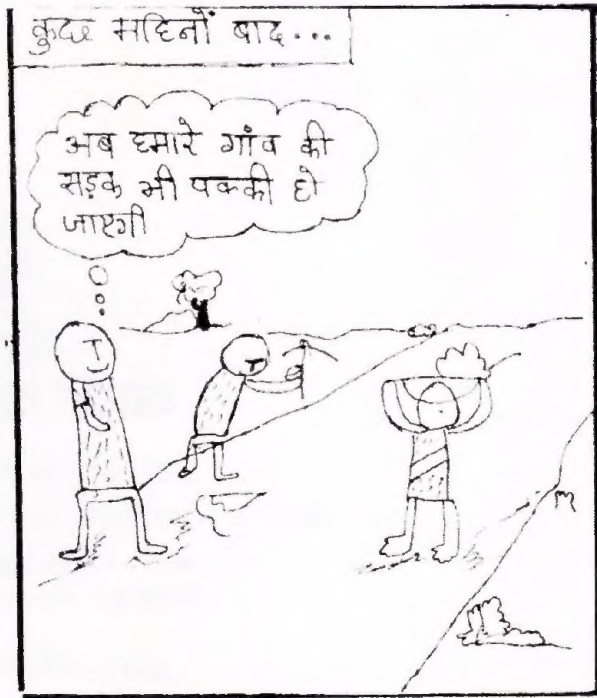 कुछ महिनों बाद...
अब हमारे गांव की
सड़क भी पक्की हो
जाएगी